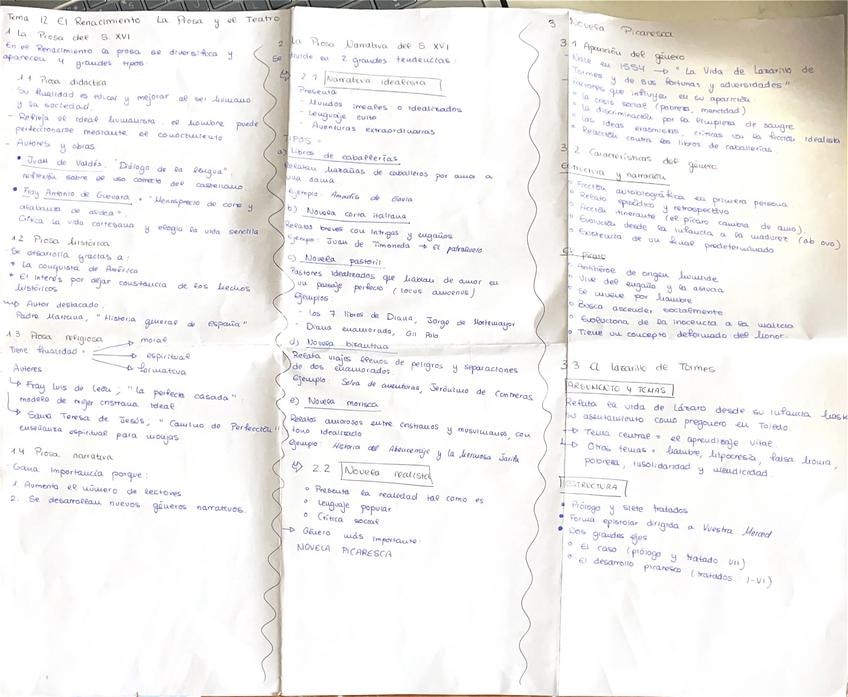 Tema 12 El Renacimiento La Prosa y el Teatro
1 La Prosa del S. XVI
En el Renacimiento la prosa se diversifica y
aparecen 4 grandes tipos:
1.1 Prosa didáctica
Su finalidad es educar y mejorar al ser humano
y su sociedad.
- Refleja el ideal humanista: el hombre puede
perfeccionarse mediante el conocimiento
- Autores y obras
• Juan de Valdés. "Diálogo de la lengua":
reflexión sobre el uso correcto del castellano
• Fray Antonio de Guevara. "Menosprecio de corte y
alabanza de aldea".
Critica la vida cortesana y elogia la vida sencilla
1.2 Prosa histórica
Se desarrolla gracias a:
• La conquista de América
• El interés por dejar constancia de los hechos
históricos
→ Autor destacado:
Padre Mariana, "Historia general de España"
1.3 Prosa religiosa
Tiene finalidad
→ moral
→ espiritual
→ formativa
Autores:
→ Fray Luis de León, "La perfecta casada":
modelo de mujer cristiana ideal
→ Santa Teresa de Jesús, "Camino de Perfección"
enseñanza espiritual para monjas.
1.4 Prosa narrativa
- Gana importancia porque:
1. Aumenta el número de lectores
2. Se desarrollan nuevos géneros narrativos.
2 La Prosa Narrativa del S. XVI
Se divide en 2 grandes tendencias:
2.1 Narrativa idealista
Presenta:
- Mundos irreales o idealizados
- Lenguaje culto
- Aventuras extraordinarias
TIPOS:
a) Libros de caballerías
Relatan hazañas de caballeros por amor a
una dama
Ejemplo: Amadís de Gaula
b) Novela corta italiana
Relatos breves con intrigas y engaños
Ejemplo: Juan de Timoneda → El patrañuelo
c) Novela pastoril
Pastores idealizados que hablan de amor en
un paisaje perfecto (locus amoenus)
Ejemplos:
- Los 7 libros de Diana, Jorge de Montemayor
- Diana enamorado, Gil Polo
d) Novela bizantina
Relata viajes llenos de peligros y separaciones
de dos enamorados.
Ejemplo: Selva de aventuras, Jerónimo de Contreras
e) Novela morisca
Relatos amorosos entre cristianos y musulmanes, con
tono idealizado
Ejemplo: Historia del Abencerraje y la hermosa Jarifa
2.2 Novela realista
• Presenta la realidad tal como es
• Lenguaje popular
• Crítica social
→ Género más importante:
NOVELA PICARESCA
3 Novela Picaresca
3.1 Aparición del género
- Nace en 1554 → "La Vida de Lazarillo de
Tormes y de sus fortunas y adversidades"
- Factores que influyen en su aparición
• la crisis social (pobreza, mendicidad)
• la discriminación por la limpieza de sangre
• las ideas erasmistas, críticas con la ficción idealista
• Reacción contra los libros de caballerías.
3.2 Características del género
Estructura y narración
• Ficción autobiográfica en primera persona
• Relato episódico y retrospectivo
• Acción itinerante (el pícaro cambia de amo).
• Evolución desde la infancia a la madurez (ab ovo)
• Existencia de un final predeterminado
El pícaro
• Antihéroe de origen humilde
• Vive del engaño y la astucia
• Se mueve por hambre
• Busca ascender socialmente
• Evoluciona de la inocencia a la malicia
• Tiene un concepto deformado del honor.
3.3 El Lazarillo de Tormes
ARGUMENTO Y TEMAS
Relata la vida de Lázaro desde su infancia hasta
su asentamiento como pregonero en Toledo
→ Tema central = el aprendizaje vital
→ Otros temas = hambre, hipocresía, falsa honra,
pobreza, insolidaridad y mendicidad.
ESTRUCTURA
• Prólogo y siete tratados
• Forma epistolar dirigida a Vuestra Merced
• Dos grandes ejes
• El caso (prólogo y tratado VII)
• El desarrollo picaresco (tratados I-VI)